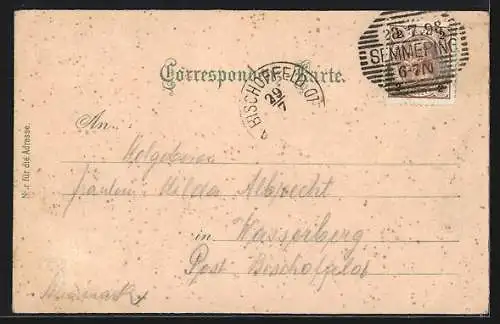 28.7.98
SEMMERING
6-7N
Correspondenz-Karte.
BISCHOFFELD
29/7
An
Wolgeboren
Fräulein Hilda Albrecht
in Wasserberg
Post Bischofgfeld
Steiermark
Nur für die Adresse.